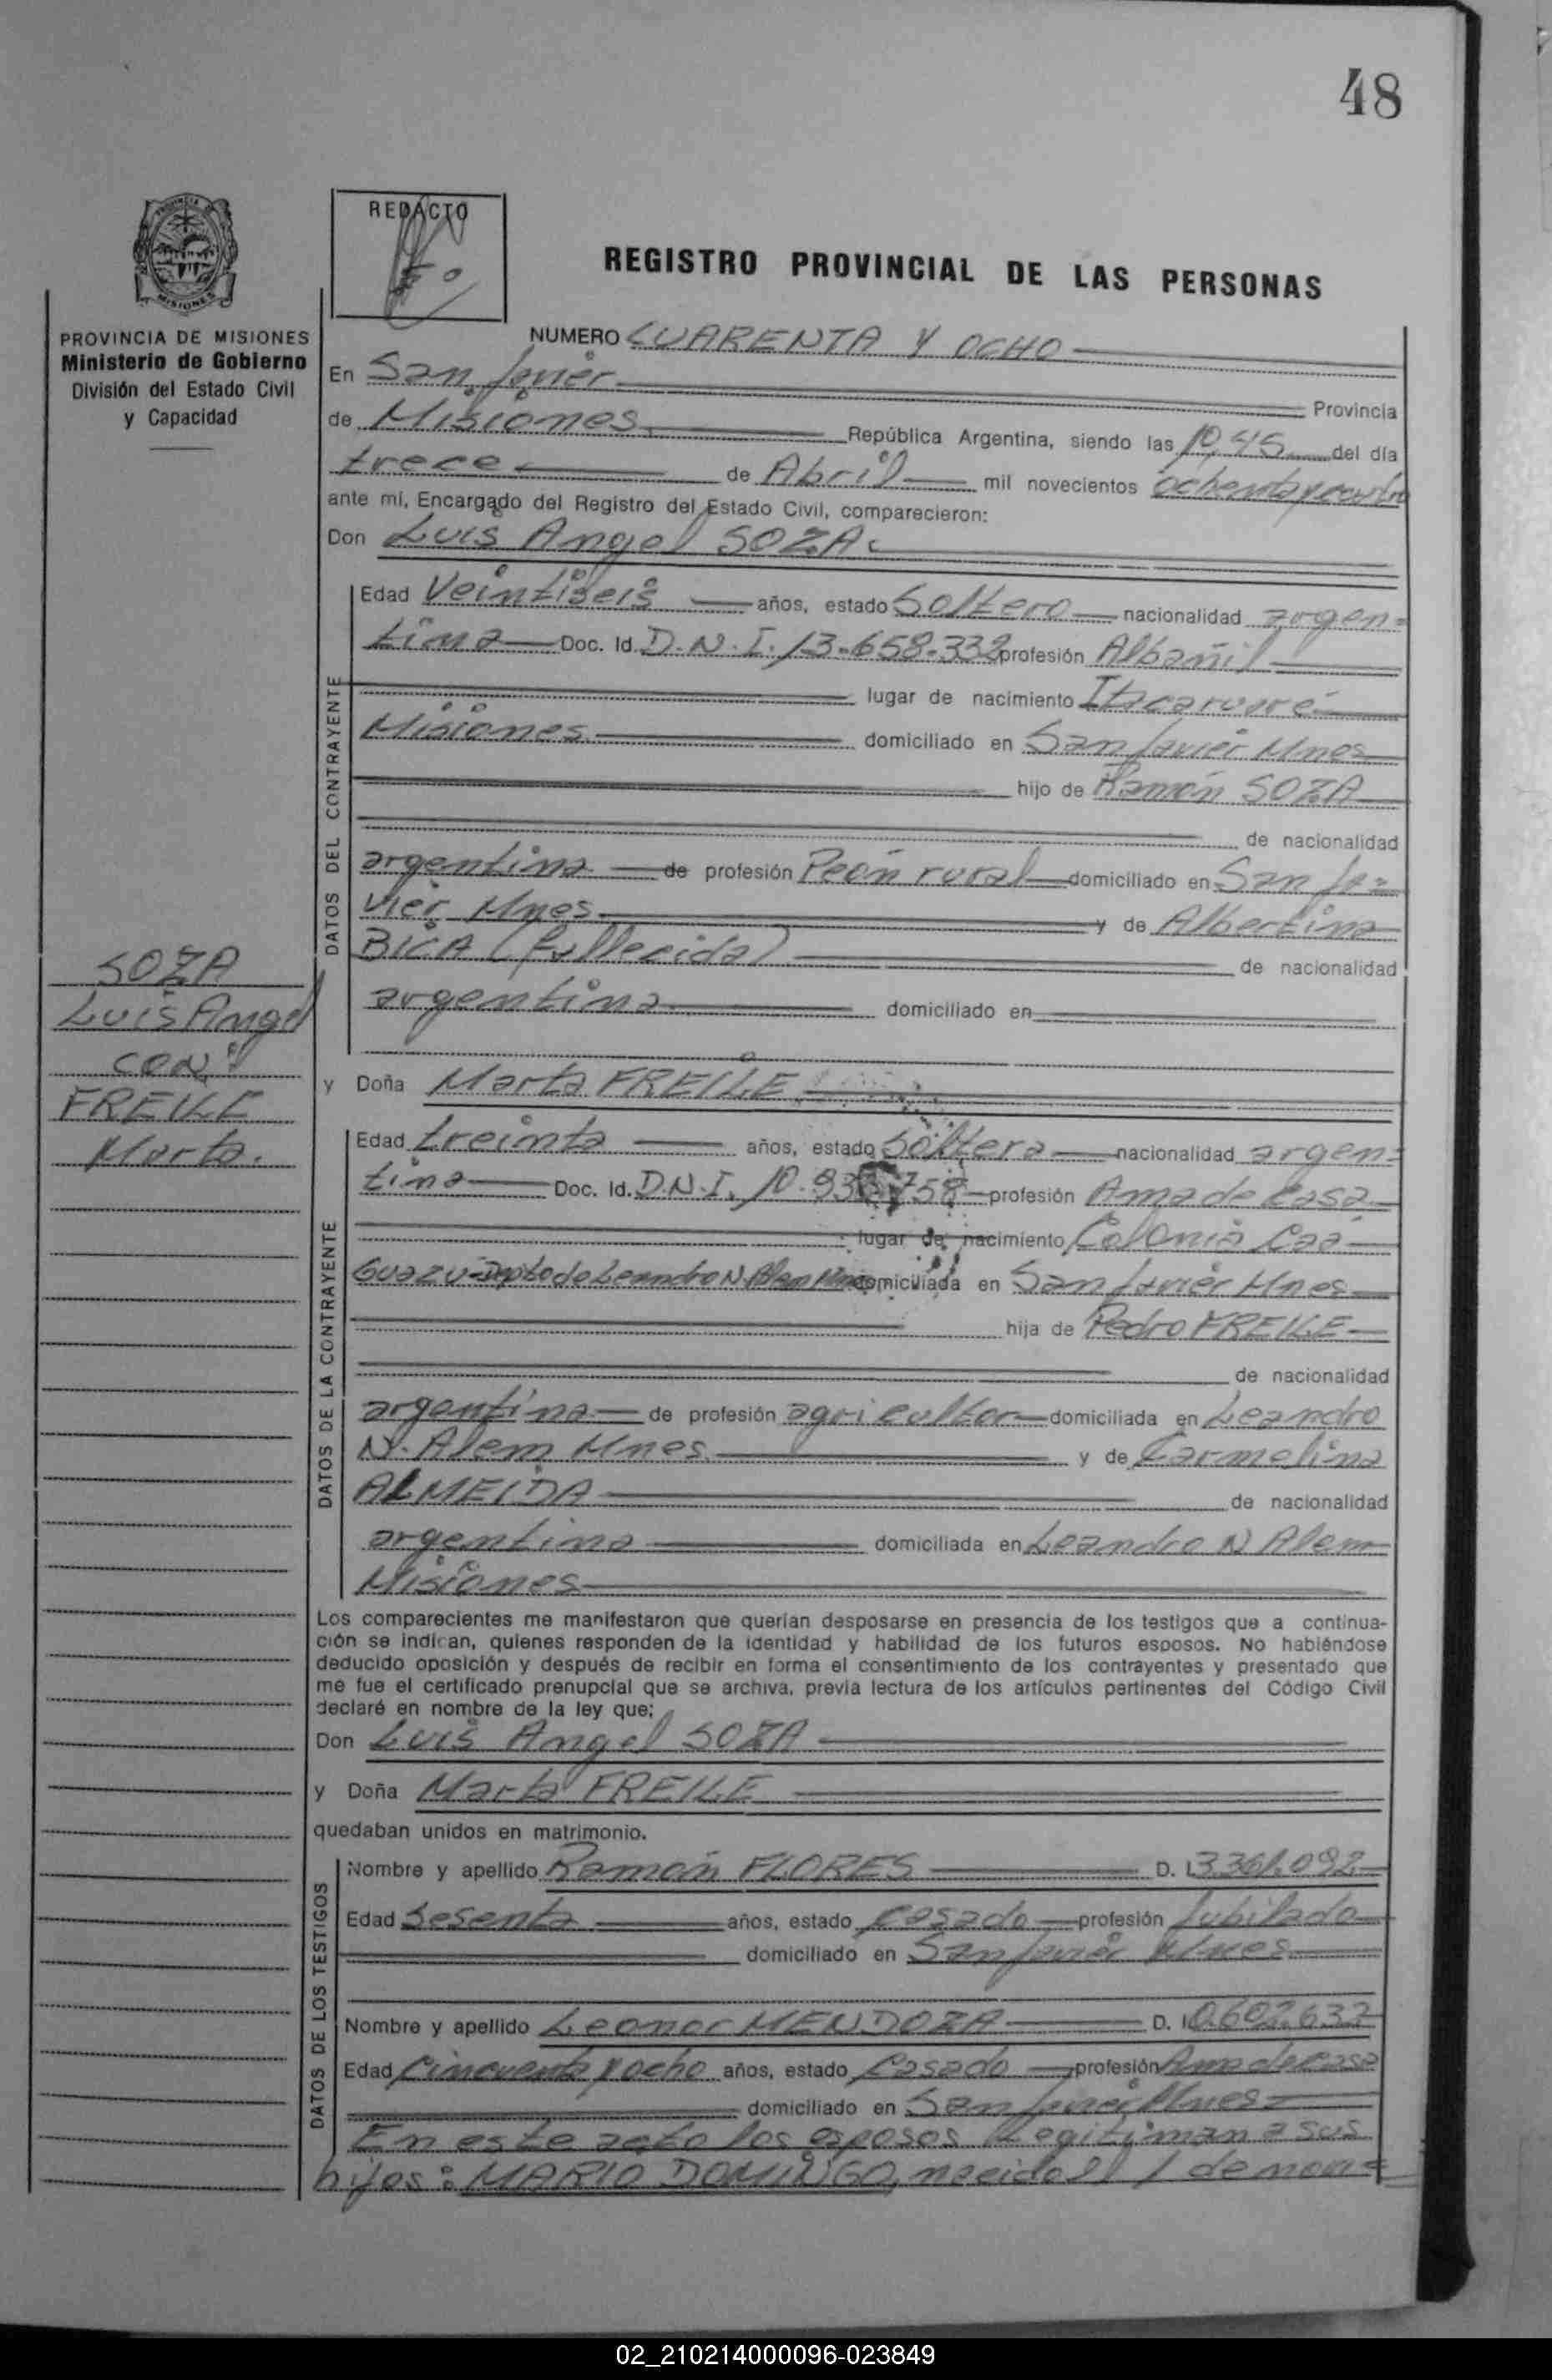 48
REDACTO
REGISTRO PROVINCIAL DE LAS PERSONAS
PROVINCIA DE MISIONES
Ministerio de Gobierno
División del Estado Civil
y Capacidad
NUMERO CUARENTA Y OCHO
En San Javier Provincia
de Misiones República Argentina, siendo las 10,45 del día
trece de Abril mil novecientos ochenta y cuatro
ante mí, Encargado del Registro del Estado Civil, comparecieron:
Don Luis Angel SOZA
Edad Veintiseis años, estado Soltero nacionalidad argen=
tina Doc. Id. D.N.I. 13.658.332 profesión Albañil
lugar de nacimiento Itacaruaré
Misiones domiciliado en San Javier Mnes
hijo de Ramón SOZA
de nacionalidad
argentina de profesión Peón rural domiciliado en San Ja=
vier Mnes y de Albertina
BICA (fallecida) de nacionalidad
argentina domiciliado en
DATOS DEL CONTRAYENTE
SOZA
Luis Angel
CON
FREILE
Marta.
y Doña Marta FREILE
Edad treinta años, estado Soltera nacionalidad argen=
tina Doc. Id. D.N.I. profesión Ama de Casa
lugar de nacimiento Colonia Caa
Guazú Dpto de Leandro N. Alem domiciliada en San Javier Mnes
hija de Pedro FREILE
de nacionalidad
argentina de profesión agricultor domiciliada en Leandro
N. Alem Mnes. y de Carmelina
ALMEIDA de nacionalidad
argentina domiciliada en Leandro N Alem
Misiones
DATOS DE LA CONTRAYENTE
Los comparecientes me manifestaron que querían desposarse en presencia de los testigos que a continua-
ción se indican, quienes responden de la identidad y habilidad de los futuros esposos. No habiéndose
deducido oposición y después de recibir en forma el consentimiento de los contrayentes y presentado que
me fue el certificado prenupcial que se archiva, previa lectura de los artículos pertinentes del Código Civil
declaré en nombre de la ley que:
Don Luis Angel SOZA
y Doña Marta FREILE
quedaban unidos en matrimonio.
Nombre y apellido Ramón FLORES D. I. 3.361.092
Edad Sesenta años, estado Casado profesión Jubilado
domiciliado en San Javier Mnes
Nombre y apellido Leonor MENDOZA D. I. 0.602.632
Edad Cincuenta y ocho años, estado Casado profesión Ama de casa
domiciliado en San Javier Mnes
DATOS DE LOS TESTIGOS
En este acto los esposos legitiman a sus
hijos: MARIO DOMINGO, nacido el 1 de
02_210214000096-023849